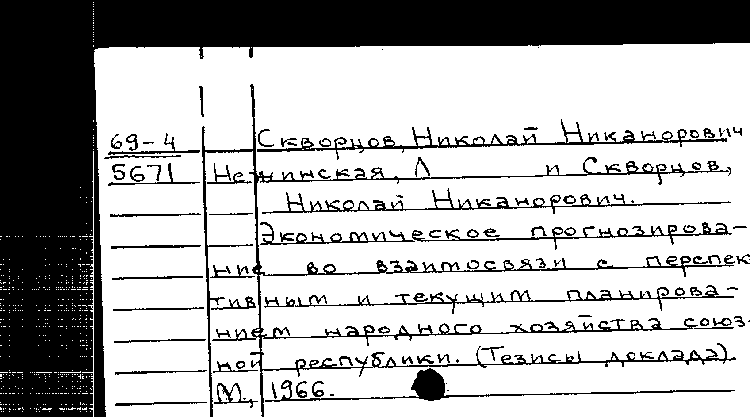 69-4 Скворцов, Николай Никанорович
5671 Нежинская, Л и Скворцов,
Николай Никанорович.
Экономическое прогнозирова-
ние во взаимосвязи с перспек
тивным и текущим планирова-
нием народного хозяйства союз-
ной республики. (Тезисы доклада).
М, 1966.